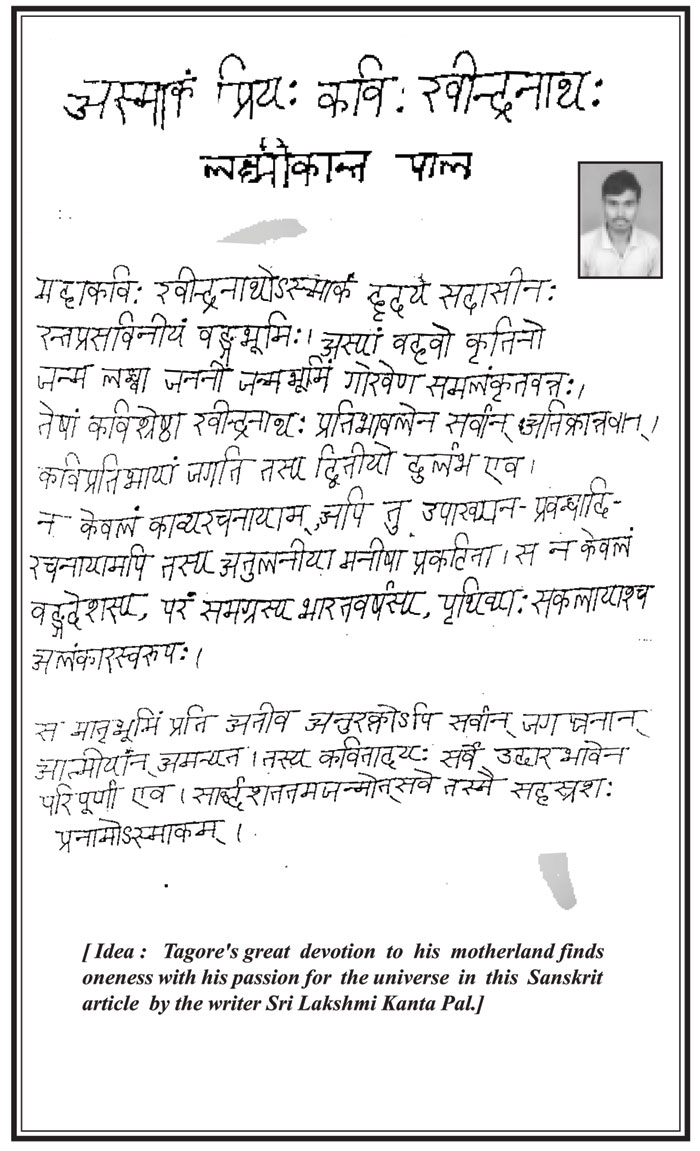 अस्माकं प्रियः कविः रवीन्द्रनाथः
लक्ष्मीकान्त पाल
महाकविः रवीन्द्रनाथोऽस्माकं हृदये सदासीनः
रत्नप्रसविनीयं वङ्गभूमिः। अस्यां वहवो कृतिनो
जन्म लब्धा जननी जन्मभूमिं गौरवेण समलंकृतवन्तः।
तेषां कविश्रेष्ठो रवीन्द्रनाथः प्रतिभावलेन सर्वान् अतिक्रान्तवान्।
कविप्रतिभायां जगति तस्य द्वितीयो दुर्लभ एव।
न केवलं काव्यरचनायाम्, अपि तु उपाख्यान-प्रवन्धादि-
रचनायामपि तस्य अतुलनीया मनीषा प्रकटिता। स न केवलं
वङ्गदेशस्य, परं समग्रस्य भारतवर्षस्य, पृथिव्याः सकलायाश्च
अलंकारस्वरुपः।
स मातृभूमिं प्रति अतीव अनुरक्तोऽपि सर्वान् जगज्जनान्
आत्मीयान् अमन्यत। तस्य कवितादयः सर्वे उदारभावेन
परिपूर्णा एव। सार्द्धशततमजन्मोत्सवे तस्मै सहस्रशः
प्रनामोऽस्माकम्।
[ Idea : Tagore's great devotion to his motherland finds
oneness with his passion for the universe in this Sanskrit
article by the writer Sri Lakshmi Kanta Pal.]